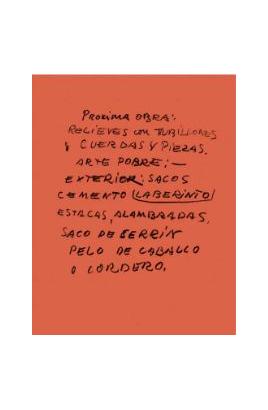 PROXIMA OBRA:
RELIEVES CON TUBILLONES
Y CUERDAS Y PIEZAS.
ARTE POBRE; —
EXTERIOR: SACOS
CEMENTO (LABERINTO)
ESTACAS, ALAMBRADAS,
SACO DE SERRIN
PELO DE CABALLO
O CORDERO.